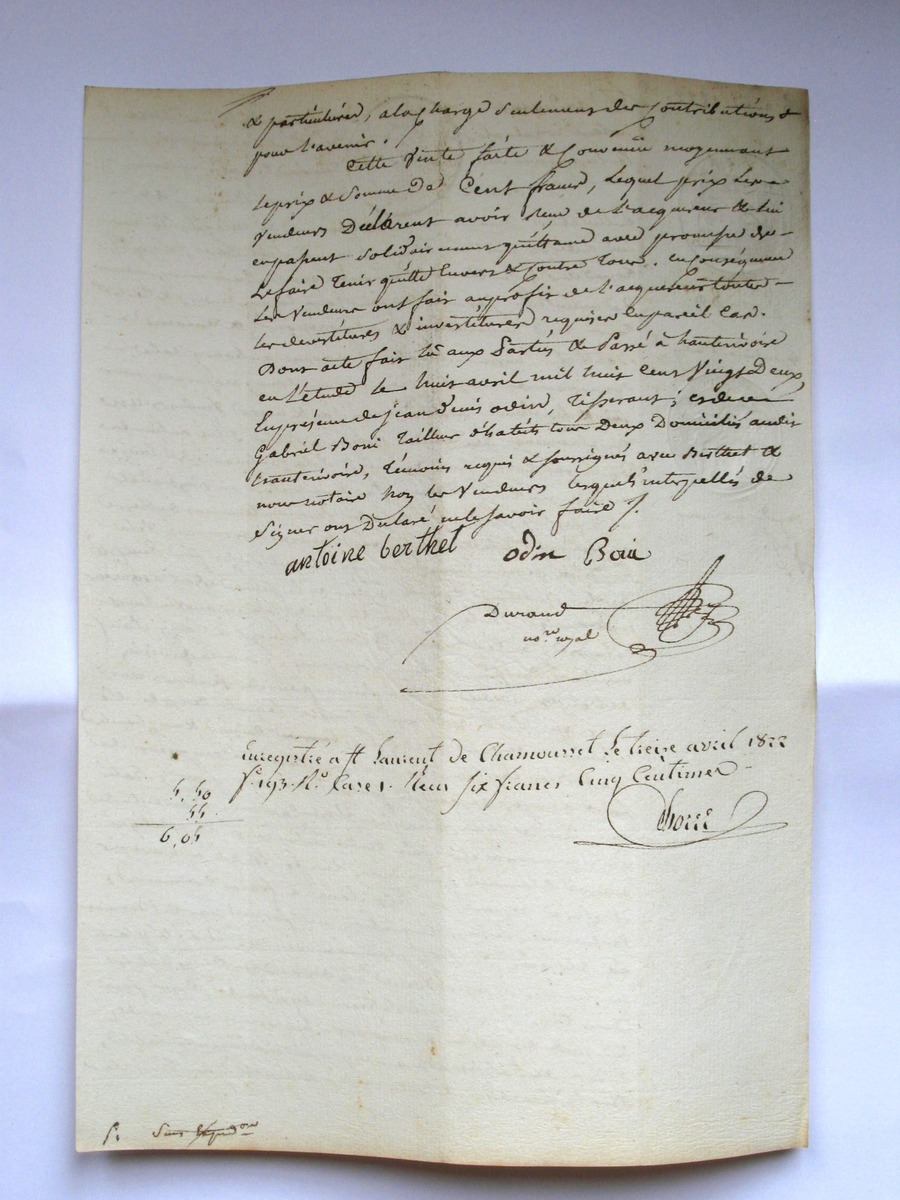 & particulière, ala Charge Seulement des Contributions &
pour l'avenir.
Cette vente faite & Convenüe moyennant
le prix & Somme de Cent francs, lequel prix Les
vendeurs Déclarent avoir reçu de l'acquéreur & lui
en passent solidairement quittance avec promesse de
le faire tenir quitte Envers & Contre Tous. en Conséquence
Les vendeurs ont fait au profit de l'acquéreur toutes
Les devestitures & investitures requises En pareil Cas.
Dont acte fait lu aux Parties & Passé à hauterivoire
en l'étude le huit avril mil huit Cent Vingt Deux,
En présence de jean Denis odin, Tisserant; et de
Gabriel Boni Tailleur d'habits tous Deux Domiciliés audit
hauterivoire, Témoins requis & soussignés avec Berthet &
nous notaire non les Vendeurs lesquels interpellés de
Signer ont Déclaré ne le Savoir faire /.
antoine berthet odin Boni
Durand
no.re royal
Enregistré a St Laurent de Chamousset le treize avril 1822
f.° 193. R.° Case 1. Reçu six francs Cinq Centimes
5, 50
55
6, 05
Sans